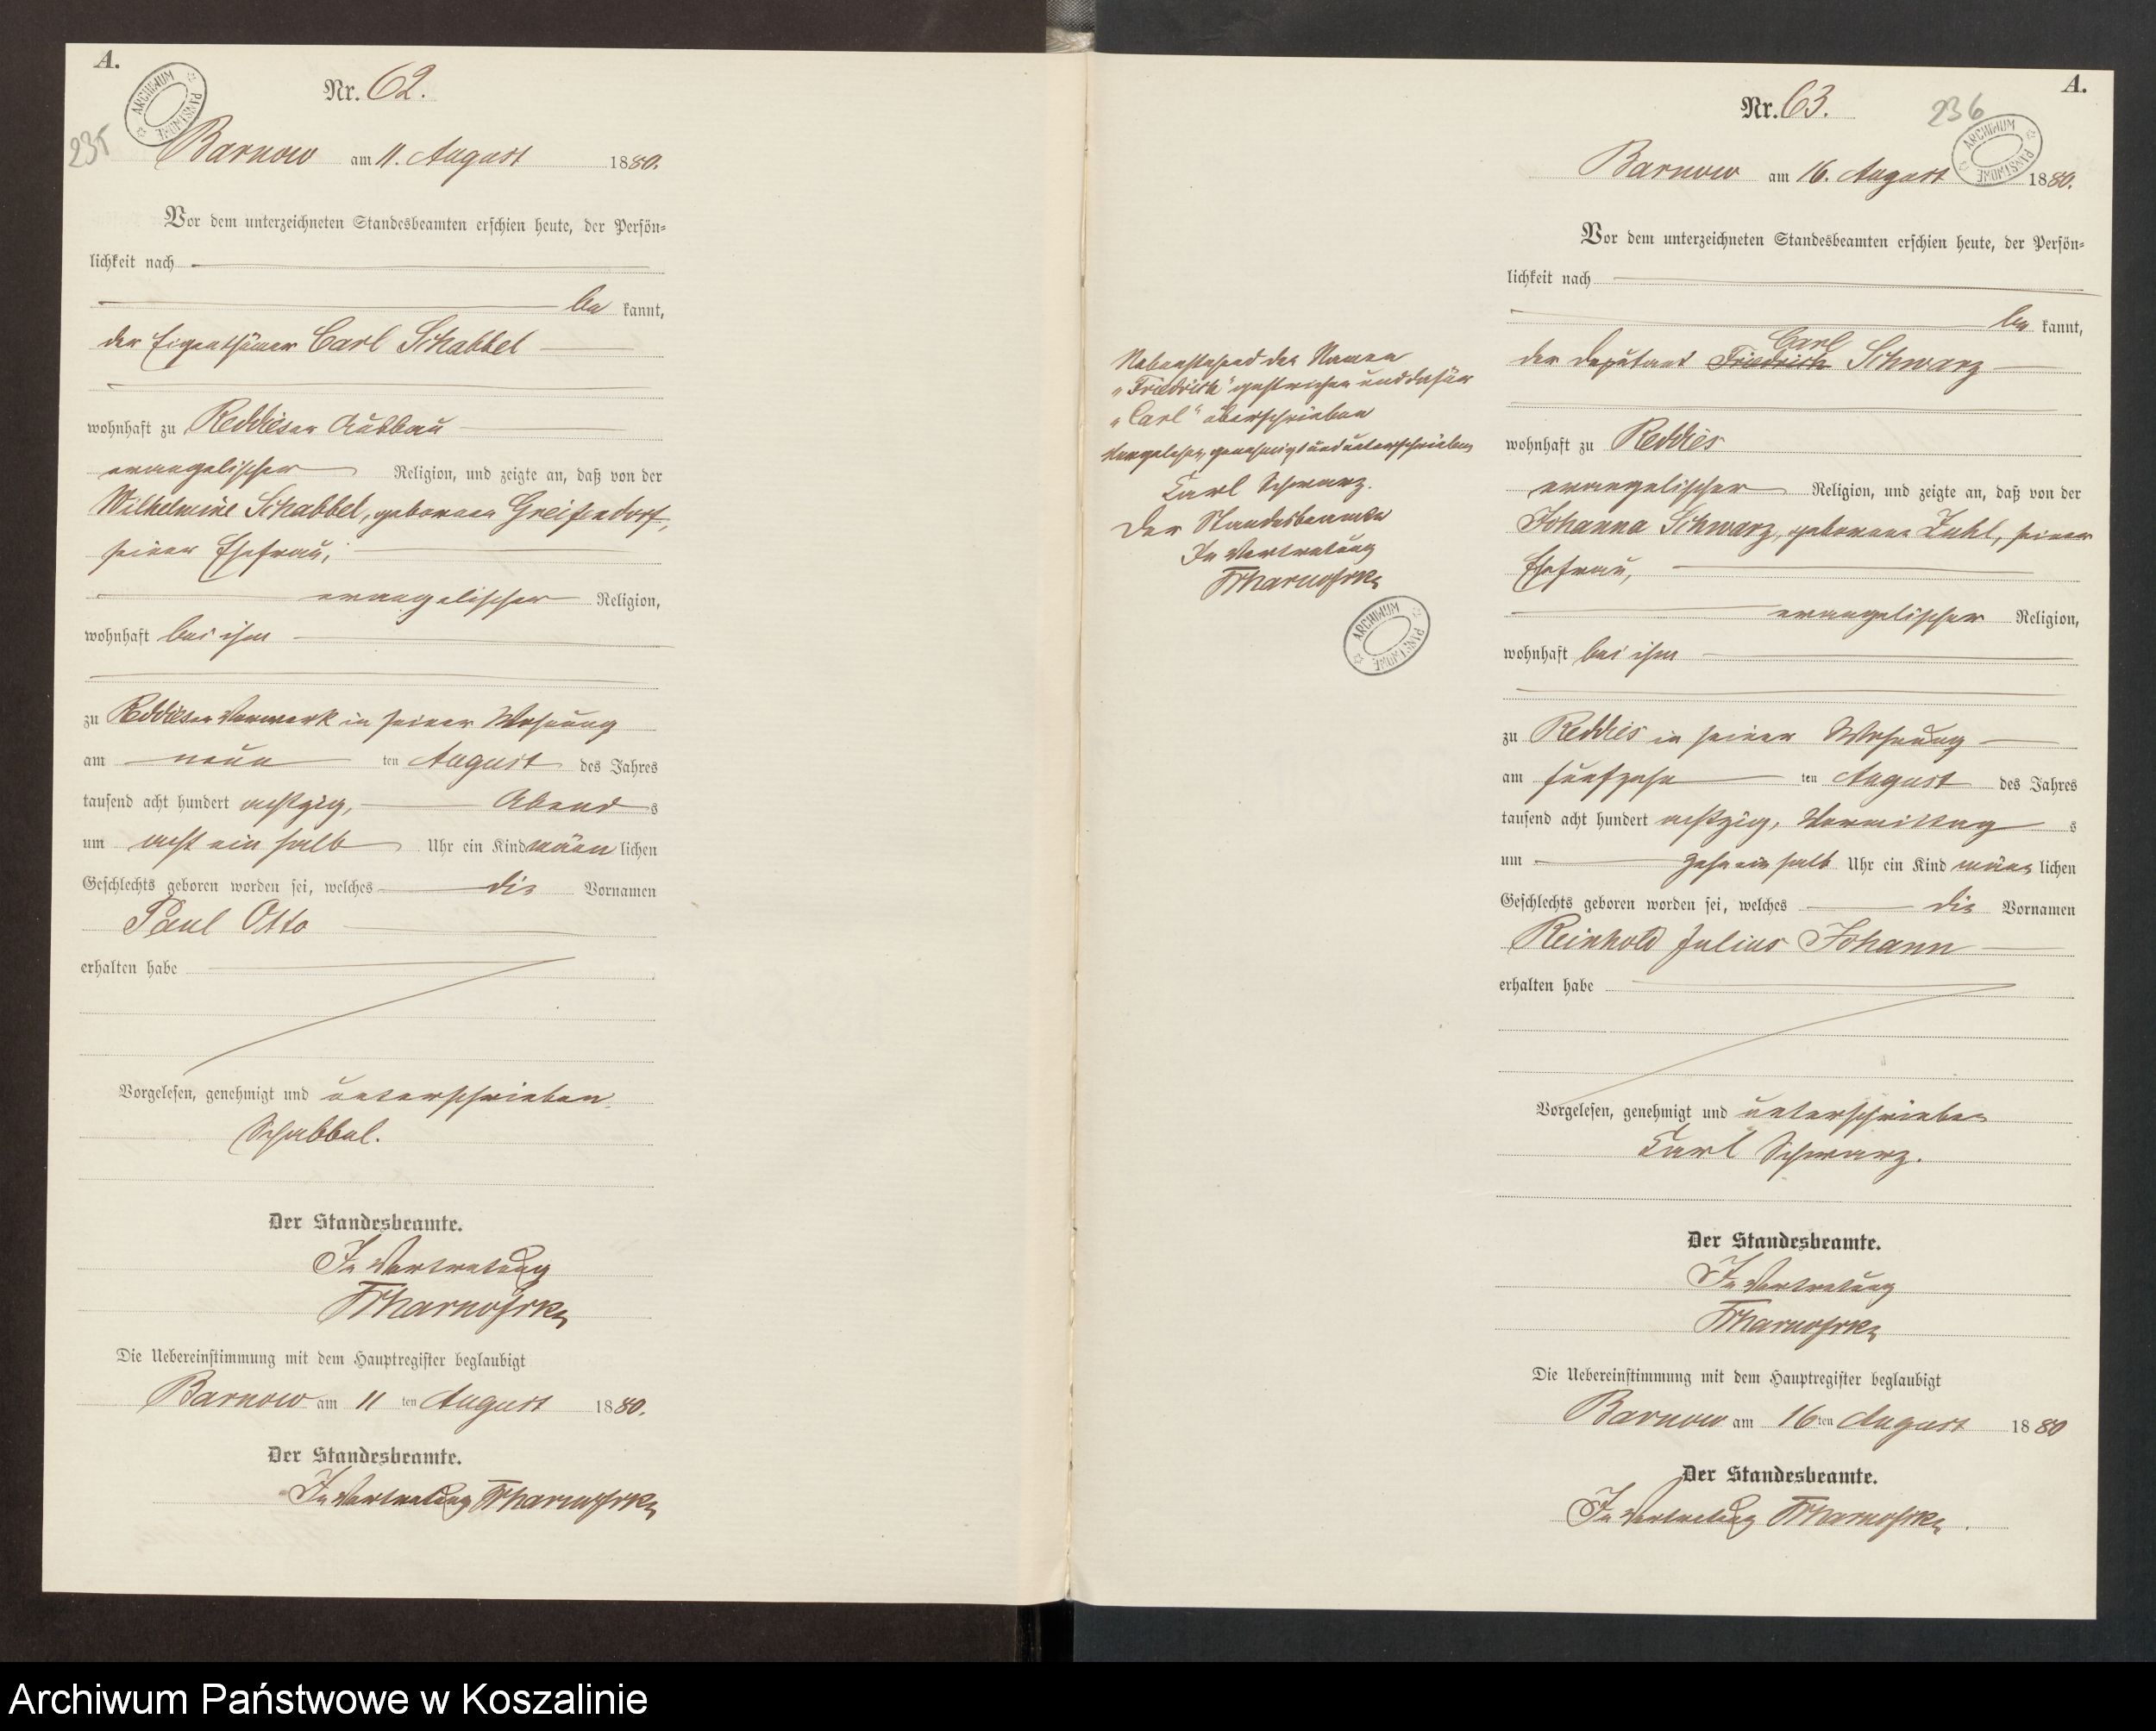 A.
ARCHIWUM PAŃSTWOWE
235
Nr. 62.
Barnow am 11. August 1880.
Vor dem unterzeichneten Standesbeamten erschien heute, der Persön-
lichkeit nach
be kannt,
der Eigenthümer Carl Schabbel
wohnhaft zu Reddieser Ausbau
evangelischer Religion, und zeigte an, daß von der
Wilhelmine Schabbel, geborenen Greifendorf,
seiner Ehefrau,
evangelischer Religion,
wohnhaft bei ihm
zu Reddieser Vorwerk in seiner Wohnung
am neun ten August des Jahres
tausend acht hundert achtzig, Abend s
um acht ein halb Uhr ein Kind männ lichen
Geschlechts geboren worden sei, welches die Vornamen
Paul Otto
erhalten habe
Vorgelesen, genehmigt und unterschrieben
Schabbel.
Der Standesbeamte.
In Vertretung
Die Uebereinstimmung mit dem Hauptregister beglaubigt
Barnow am 11 ten August 1880.
Der Standesbeamte.
In Vertretung
Nebenstehend der Namen
„Friedrich“ gestrichen und dafür
„Carl“ überschrieben
Vorgelesen, genehmigt und unterschrieben
Carl Schwarz.
Der Standesbeamte
In Vertretung
ARCHIWUM PAŃSTWOWE
A.
236
ARCHIWUM PAŃSTWOWE
Nr. 63.
Barnow am 16. August 1880.
Vor dem unterzeichneten Standesbeamten erschien heute, der Persön-
lichkeit nach
be kannt,
Carl
der Deputant Friedrich Schwarz
wohnhaft zu Reddies
evangelischer Religion, und zeigte an, daß von der
Johanna Schwarz, geborenen Zuhl, seiner
Ehefrau,
evangelischer Religion,
wohnhaft bei ihm
zu Reddies in seiner Wohnung
am fünfzehn ten August des Jahres
tausend acht hundert achtzig, Vormittag s
um zehn ein halb Uhr ein Kind männ lichen
Geschlechts geboren worden sei, welches die Vornamen
Reinhold Julius Johann
erhalten habe
Vorgelesen, genehmigt und unterschrieben
Carl Schwarz.
Der Standesbeamte.
In Vertretung
Die Uebereinstimmung mit dem Hauptregister beglaubigt
Barnow am 16 ten August 1880
Der Standesbeamte.
In Vertretung
Archiwum Państwowe w Koszalinie